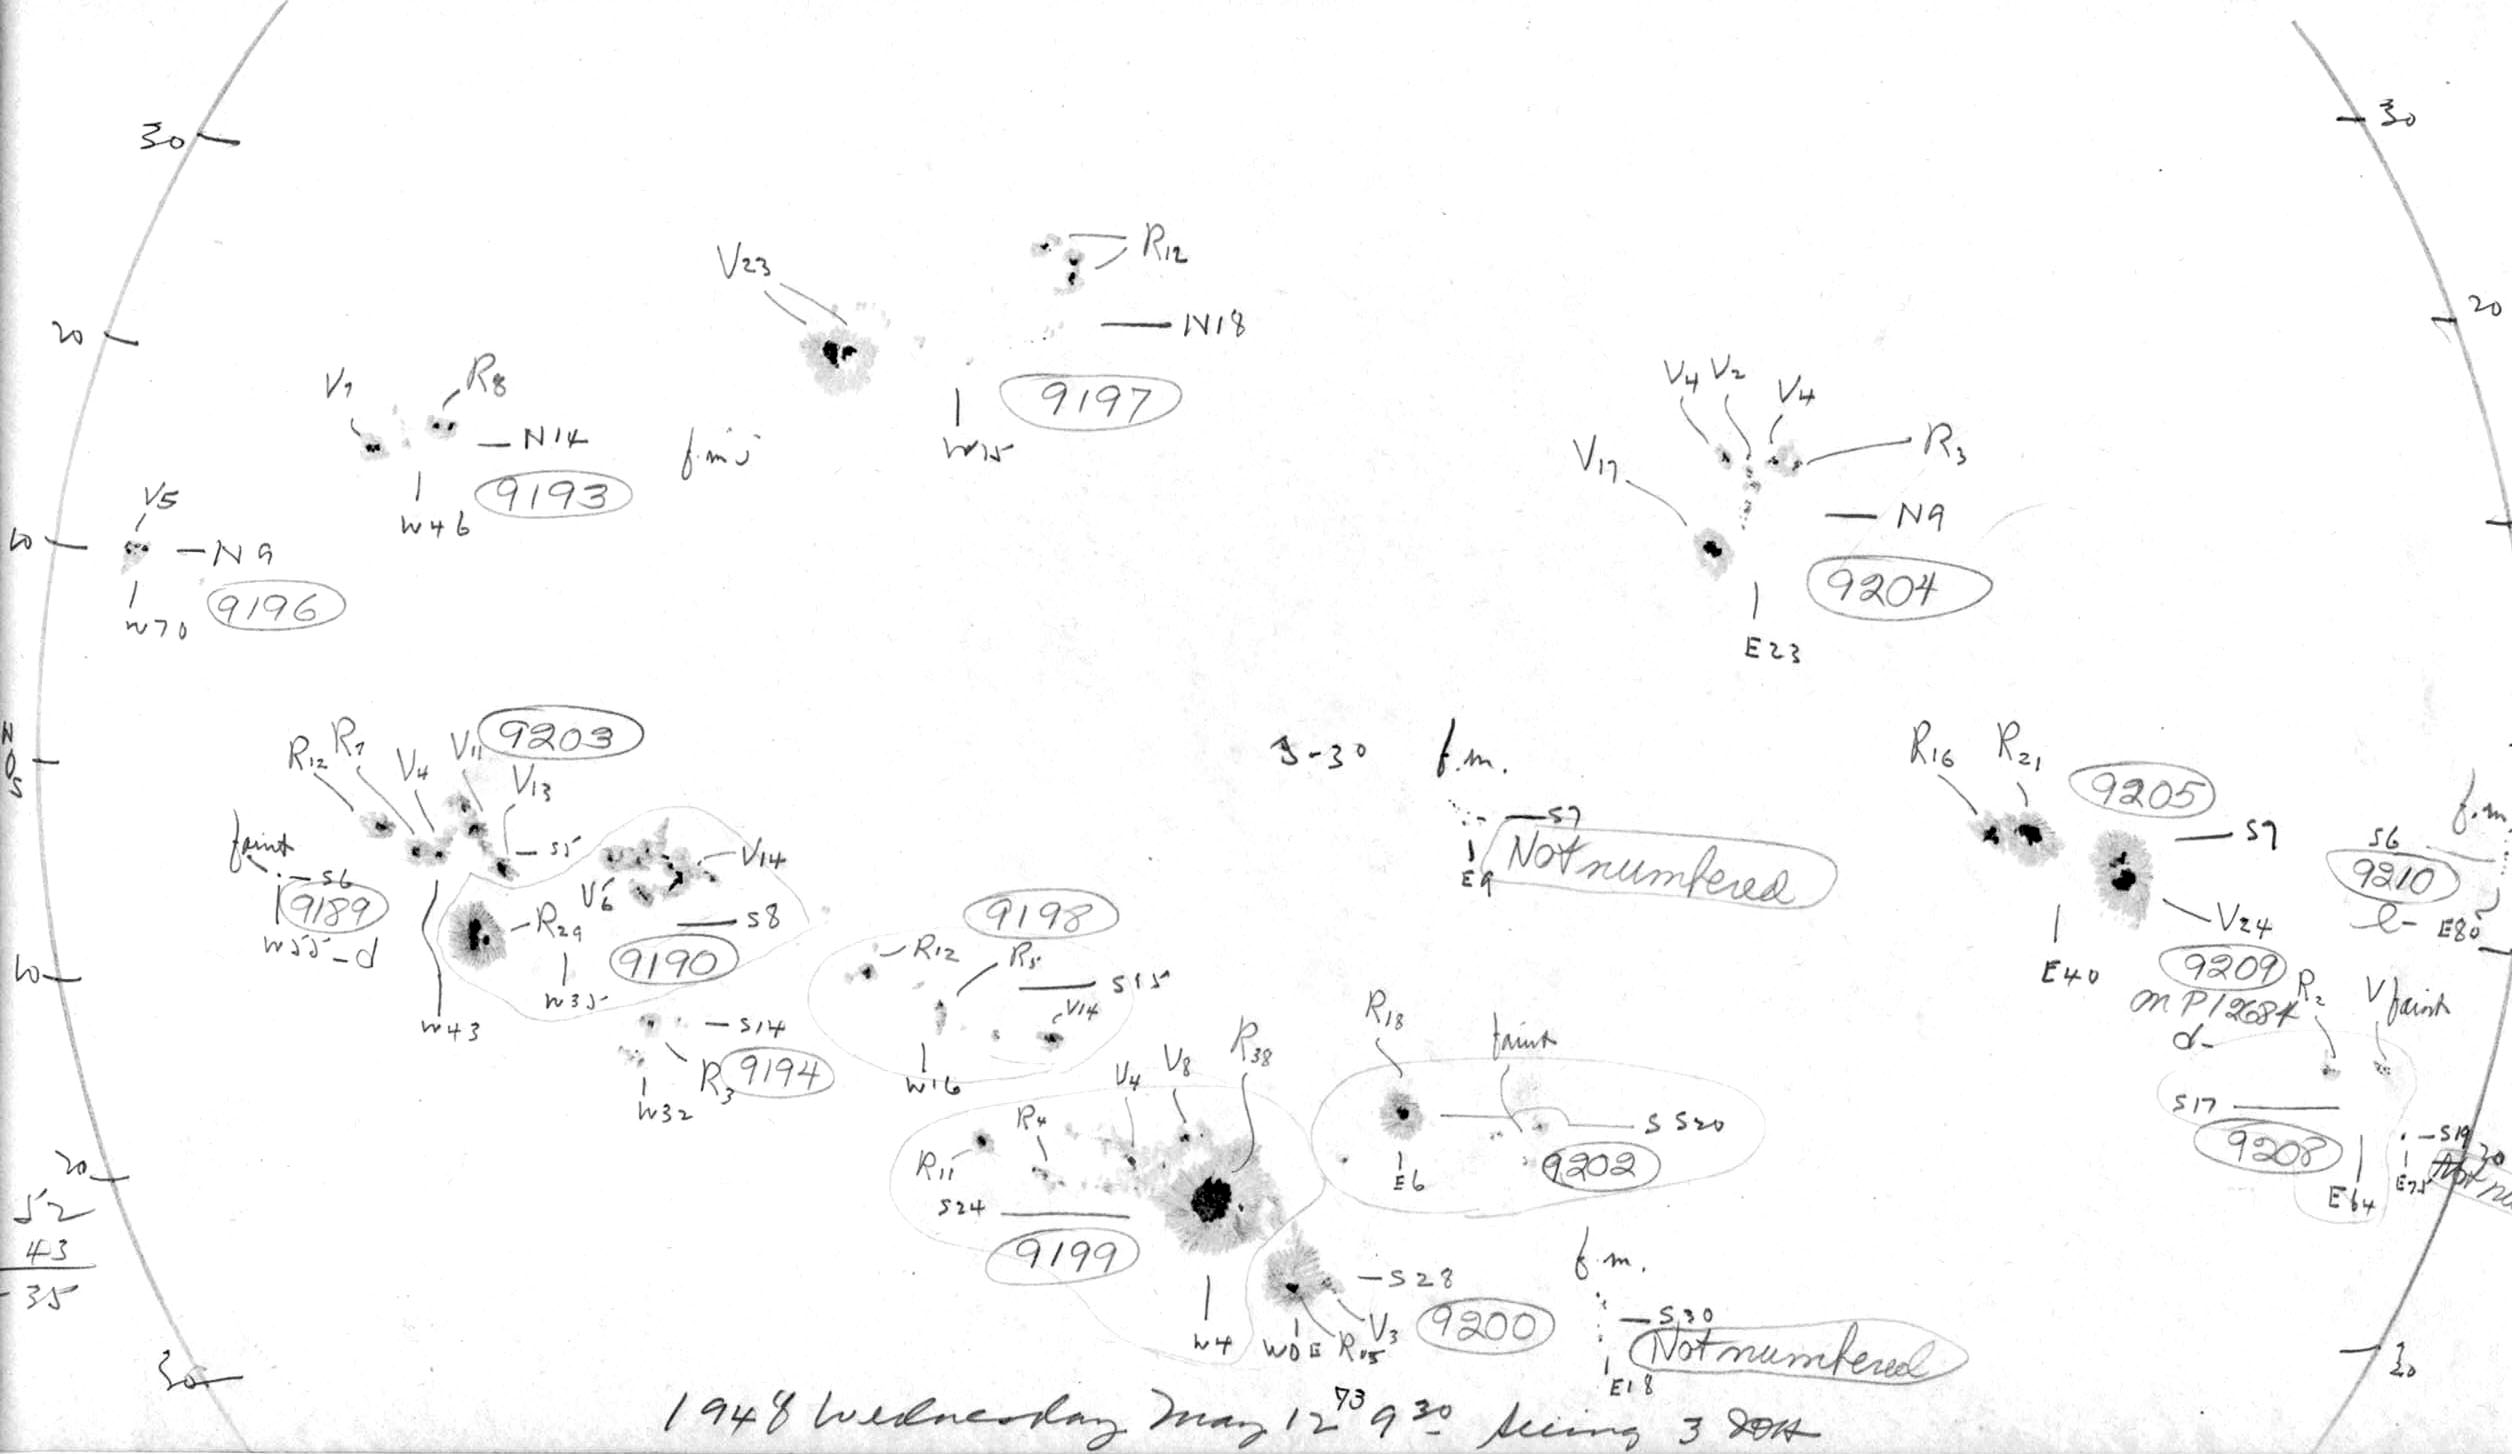 30
30
R12
V23
N18
20
20
R8
V7
9197
V4 V2 V4
N14
R3
V17
9193
W15
W46
V5
N9
10
N9
9196
9204
W70
E23
9203
R12 R7 V4 V11
V13
N
0
S
S-30 f.m.
R16 R21
9205
S7
S7
f.m.
S6
faint
S5
V14
Not numbered
E9
9210
S6
9189
V6
R29
S8
V24
E80
W55-d
9190
9198
R12 R5
S15
E40
9209
10
W35
V14
W43
S14
m P12684
d-
R2
V faint
R3
9194
W16
W32
R18
faint
V4 V8 R38
R4
R11
S S20
S17
S24
E6
9202
9208
S19
20
20
9199
E64
E75
52
43
35
S28
f.m.
V3
9200
S30
W4
W0E R15
Not numbered
E18
30
30
1948 Wednesday May 12 73 9 30 seeing 3